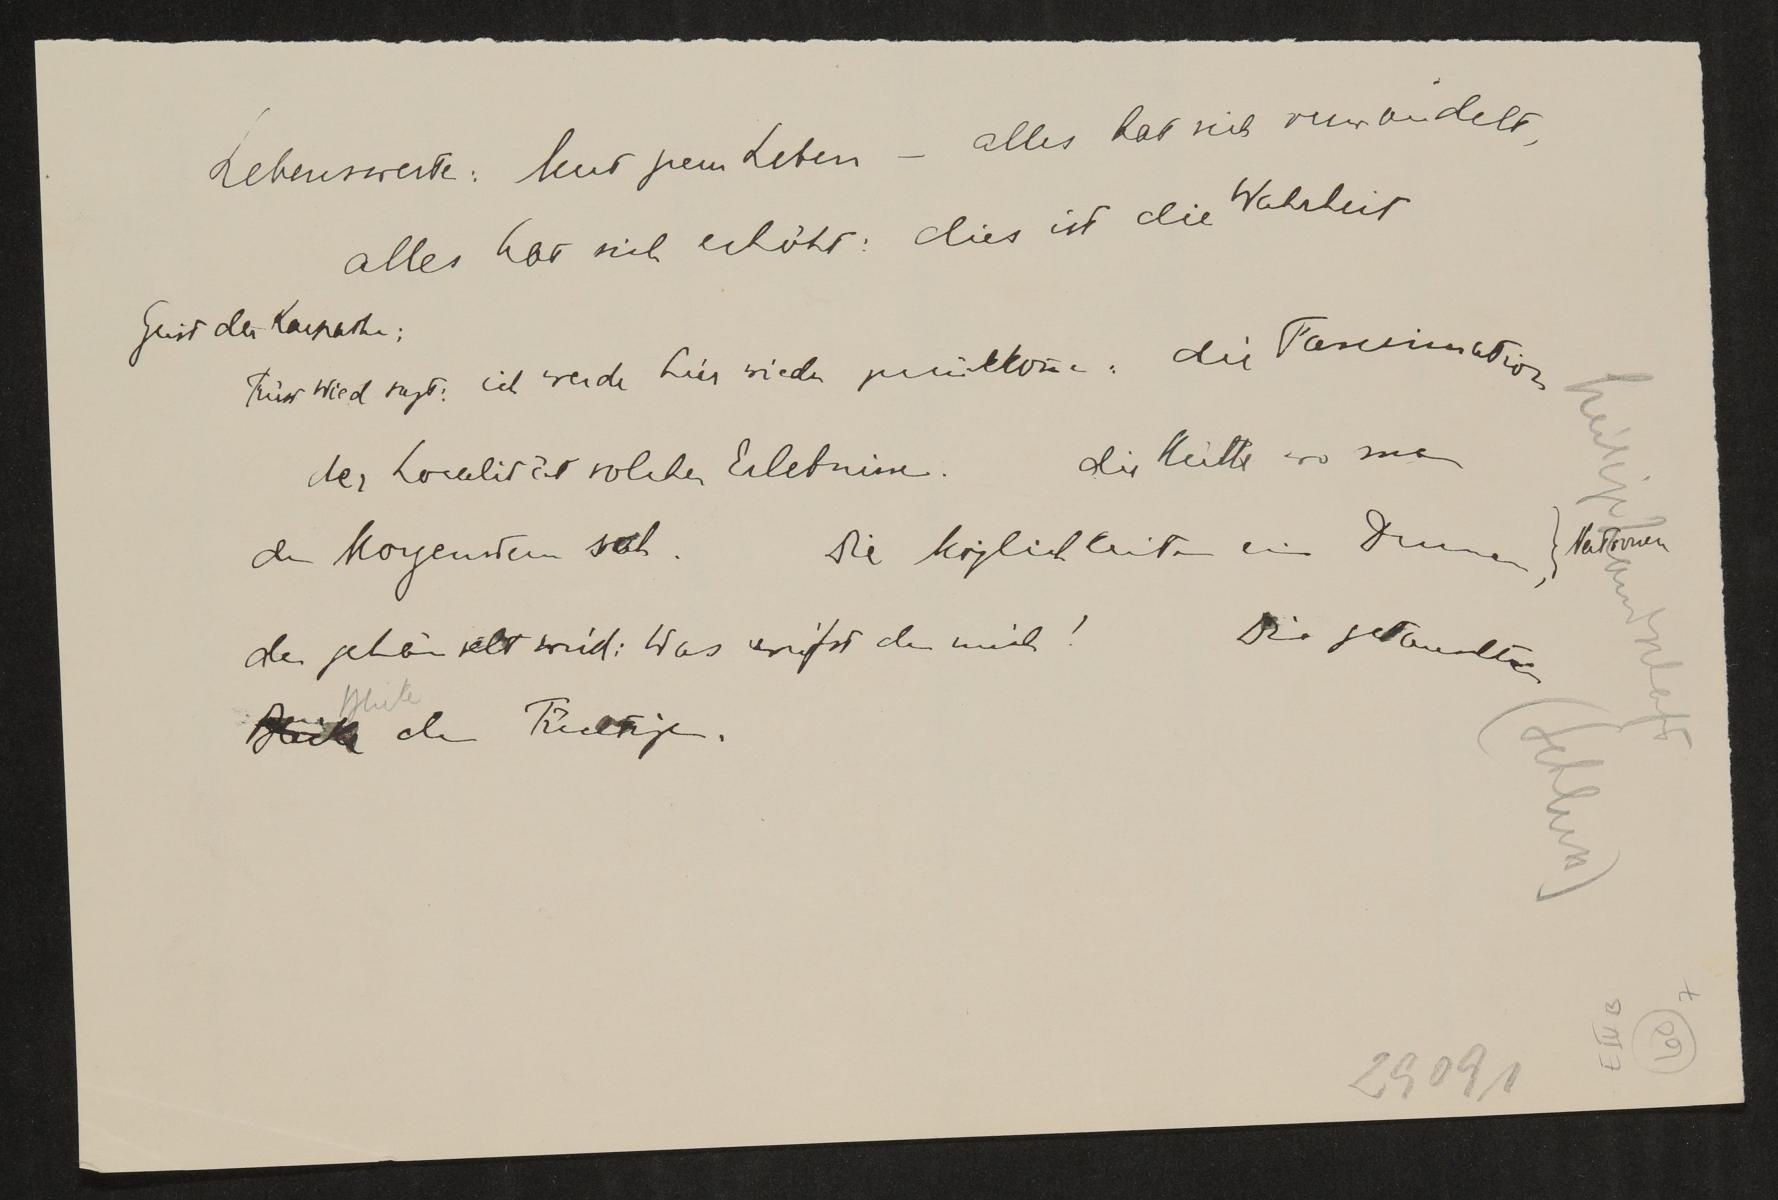 Lebenswerte: Mut zum Leben – alles hat sich verwandelt,
alles hat sich erhöht: dies ist die Wahrheit
Geist der Karpathen:
Fürst Wied sagt: ich werde hier wieder zurückkom̄en: die Fascination
der Localität solcher Erlebnisse. die Hütte wo man
den Morgenstern sah. Die Möglichkeiten eines Dummen,
der gehänselt wird: Was weißt du mich! Die getauschten
Blicke der Tüchtigen.
Blicke
} Nationen
(Schluss)
29091
E IV B
69
7